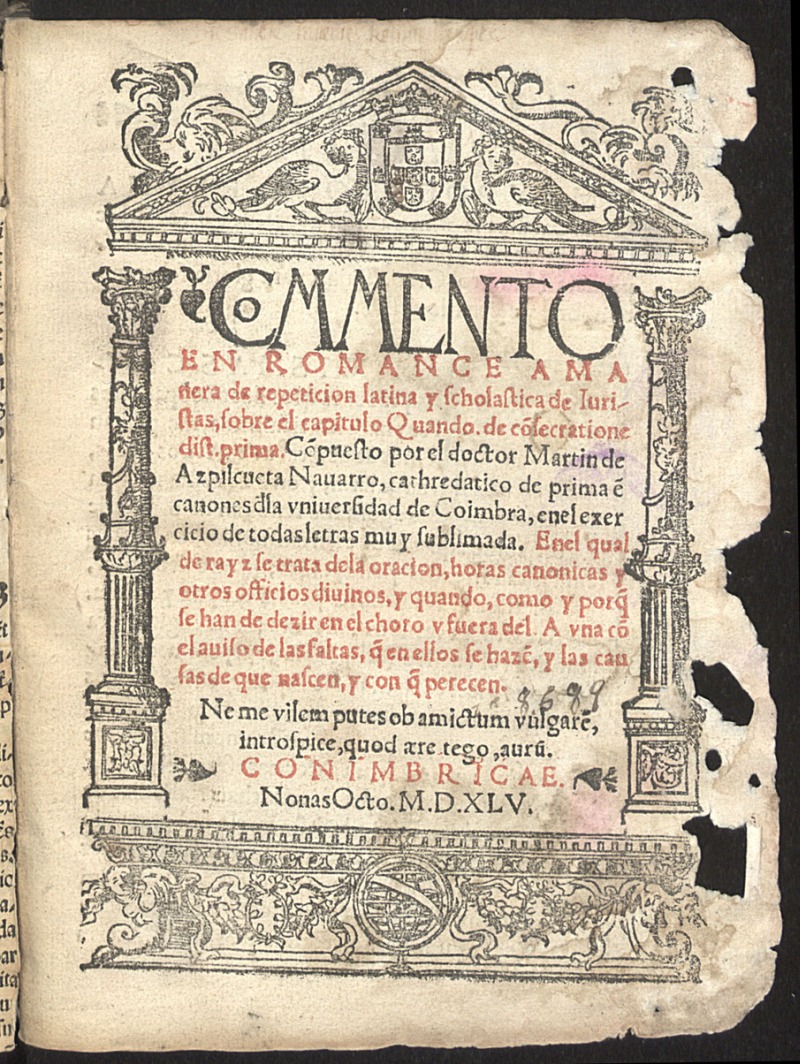 COMMENTO
EN ROMANCE AMA
nera de repeticion latina y scholastica de Iuri-
stas, sobre el capitulo Quando. de cõsecratione
dist. prima. Cõpuesto por el doctor Martin de
Azpilcueta Nauarro, cathredatico de prima ẽ
canones dl̃a vniuersidad de Coimbra, enel exer
cicio de todas letras muy sublimada. Enel qual
de rayz se trata dela oracion, horas canonicas y
otros officios diuinos, y quando, como y porq̃
se han de dezir en el choro y fuera del. A vna cõ
el auiso de las faltas, q̃ en ellos se hazẽ, y las cau
sas de que nascen, y con q̃ perecen.
8689
Ne me vilem putes ob amictum vulgarẽ,
introspice, quod ære tego, aurũ.
CONIMBRICAE.
Nonas Octo. M.D.XLV.